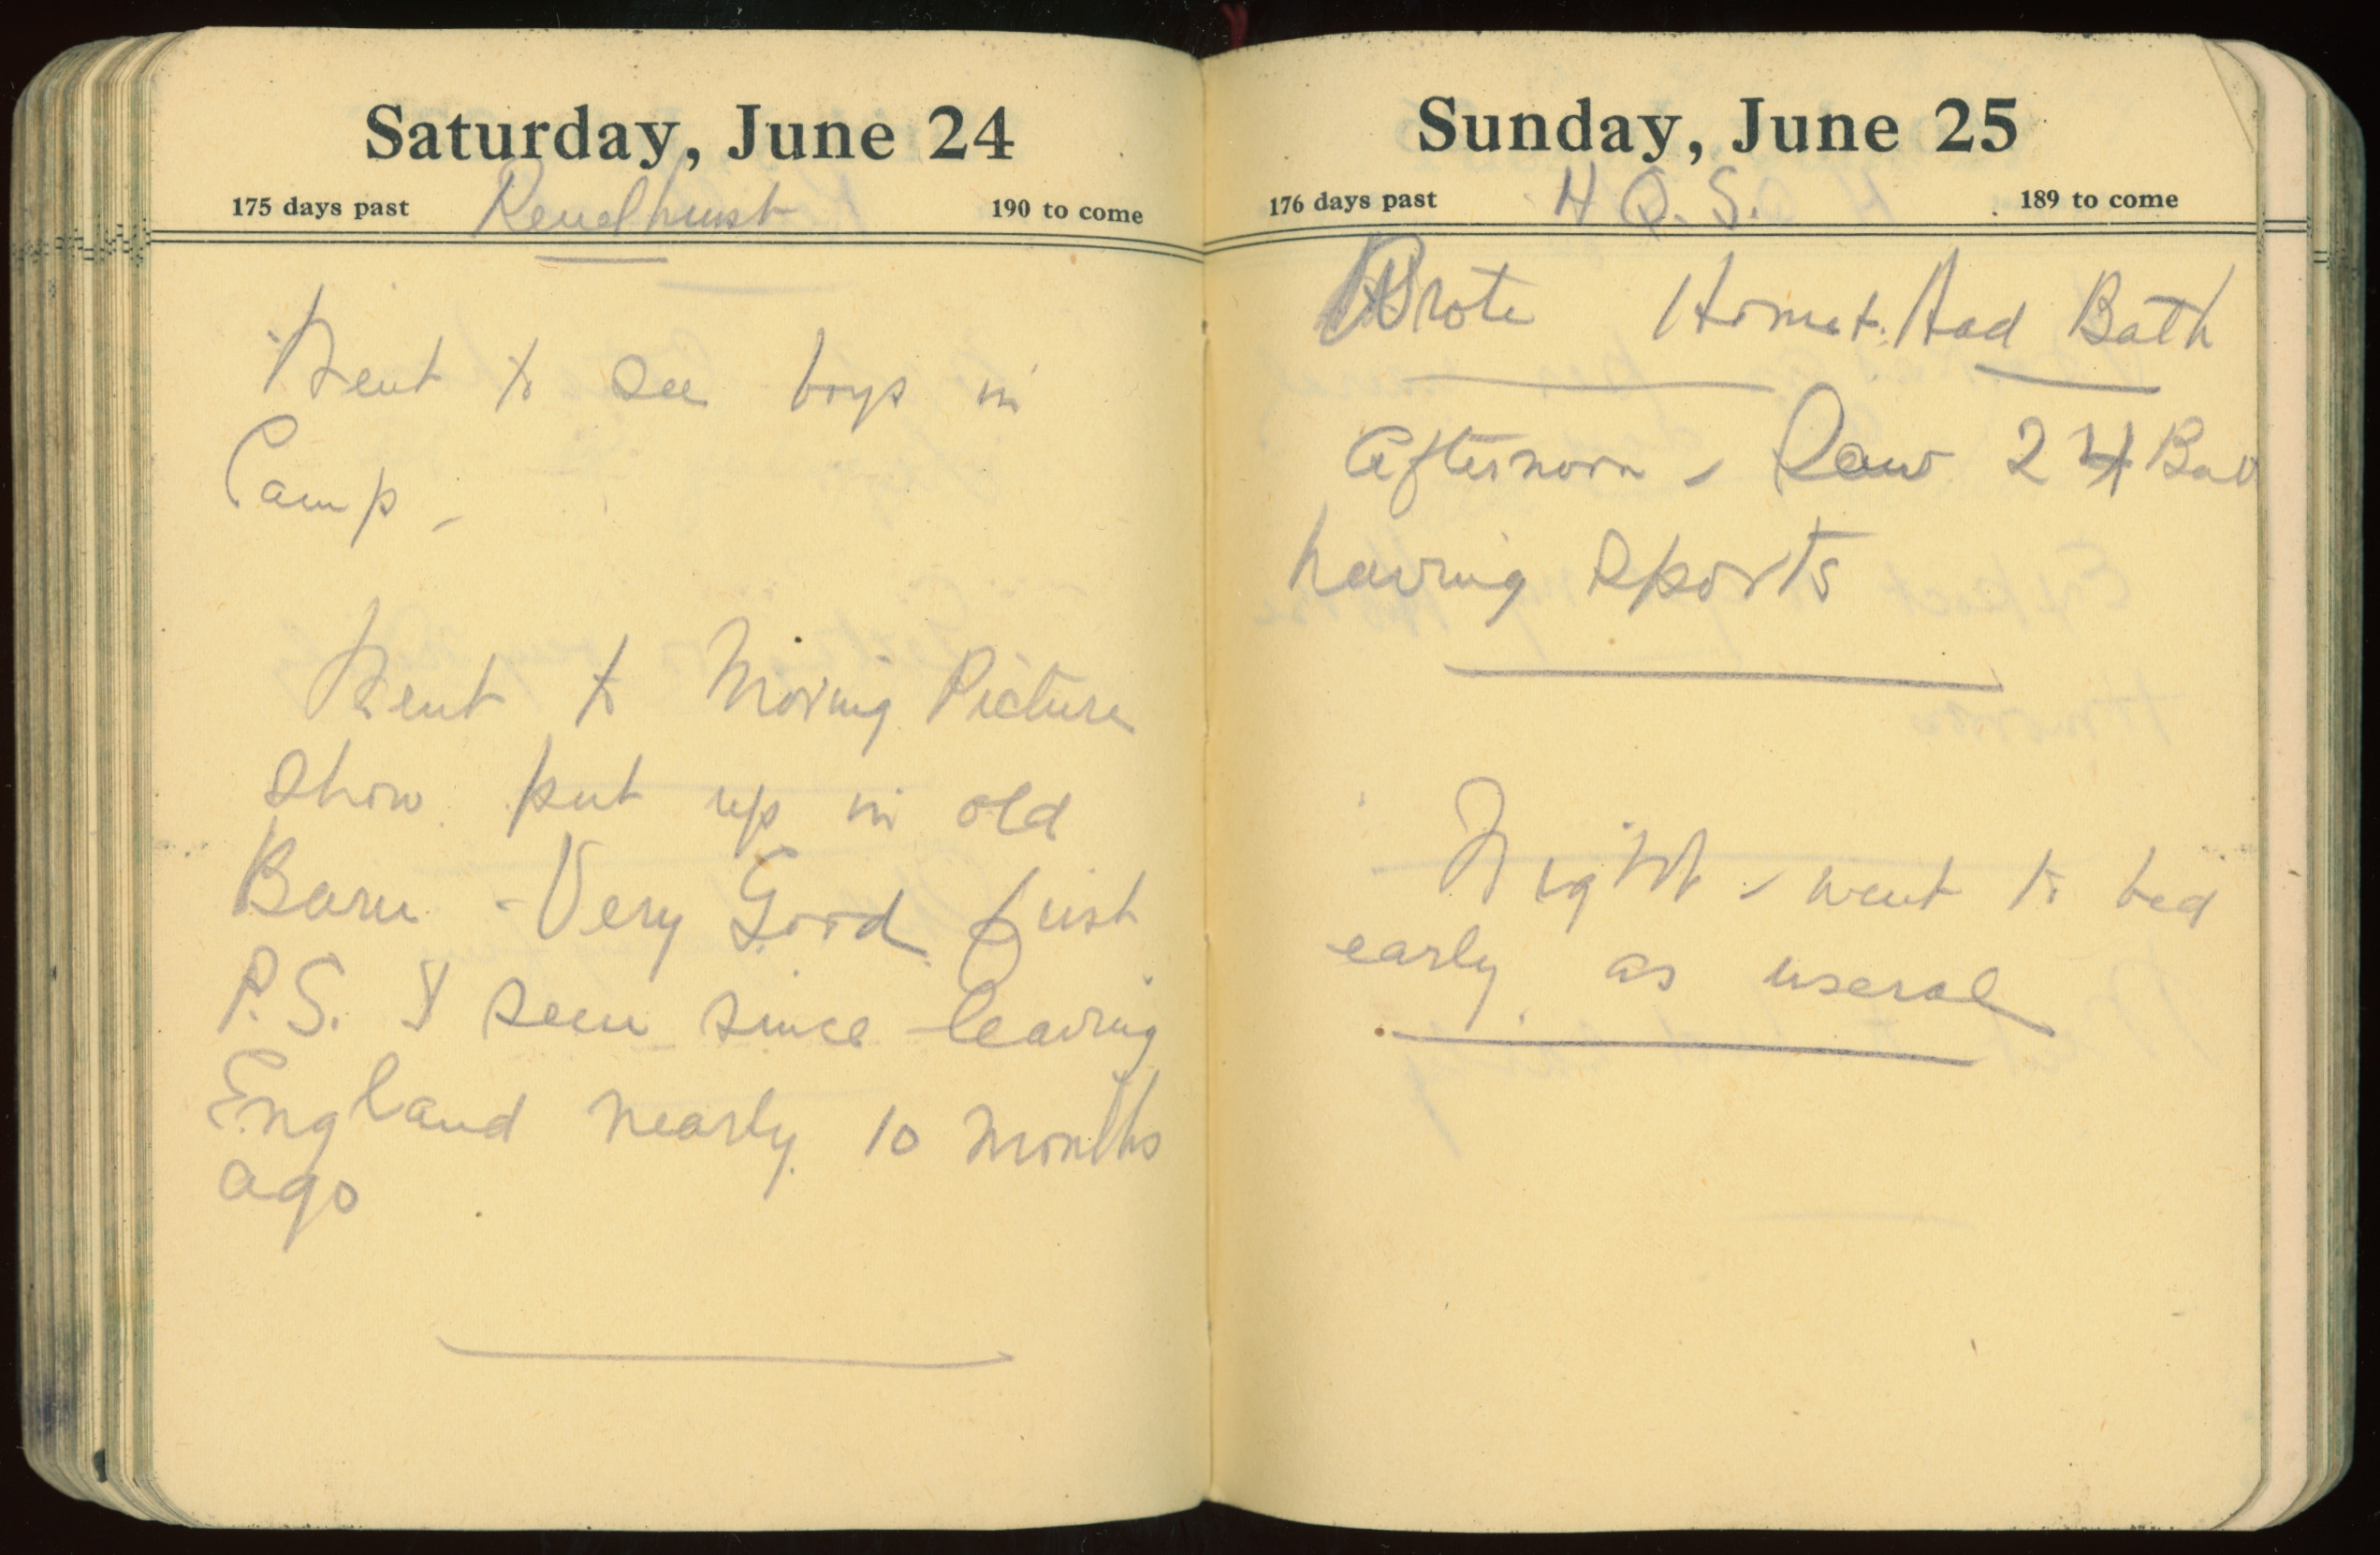 Saturday, June 24
175 days past Renelhurst 190 to come
Went to see boys in
Camp -
Went to Moving Picture
show put up in old
Barn - Very Good first
P.S. I seen since leaving
England nearly 10 months
ago
Sunday, June 25
176 days past H Q. S. 189 to come
Wrote Home +. Had Bath
Afternoon - Saw 24 Bat
having sports
Night - went to bed
early as useral